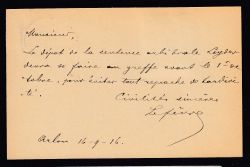 Monsieur,
Le dépôt de la sentence arbitrale
devra se faire au greffe avant le 1er oc-
tobre, pour éviter tout reproche de tardivi-
té.
Civilités sincères
Lefèvre
Arlon 16-9-16.